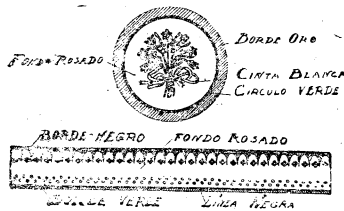 BORDE ORO
FONDO ROSADO
CINTA BLANCA
CIRCULO VERDE
BORDE-NEGRO FONDO ROSADO
BORDE VERDE LINEA NEGRA